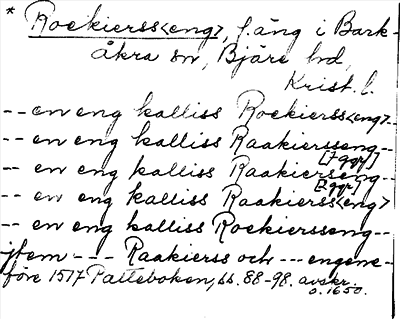 * Roekierss<eng>, f. äng i Bark-
åkra sn, Bjäre hd,
Krist. l.
-- en eng kalliss Roekierss<eng>--
-- en eng kalliss Raakiersseng--
[7 ggr]
-- en eng kalliss Raakierseng--
[2 ggr]
-- en eng kalliss Raakierss<eng>
-- en eng kalliss Roekiersseng--
jtem --- Raakierss och --- engene-
före 1517 Palteboken, ss. 88-98. avskr.
o. 1650.